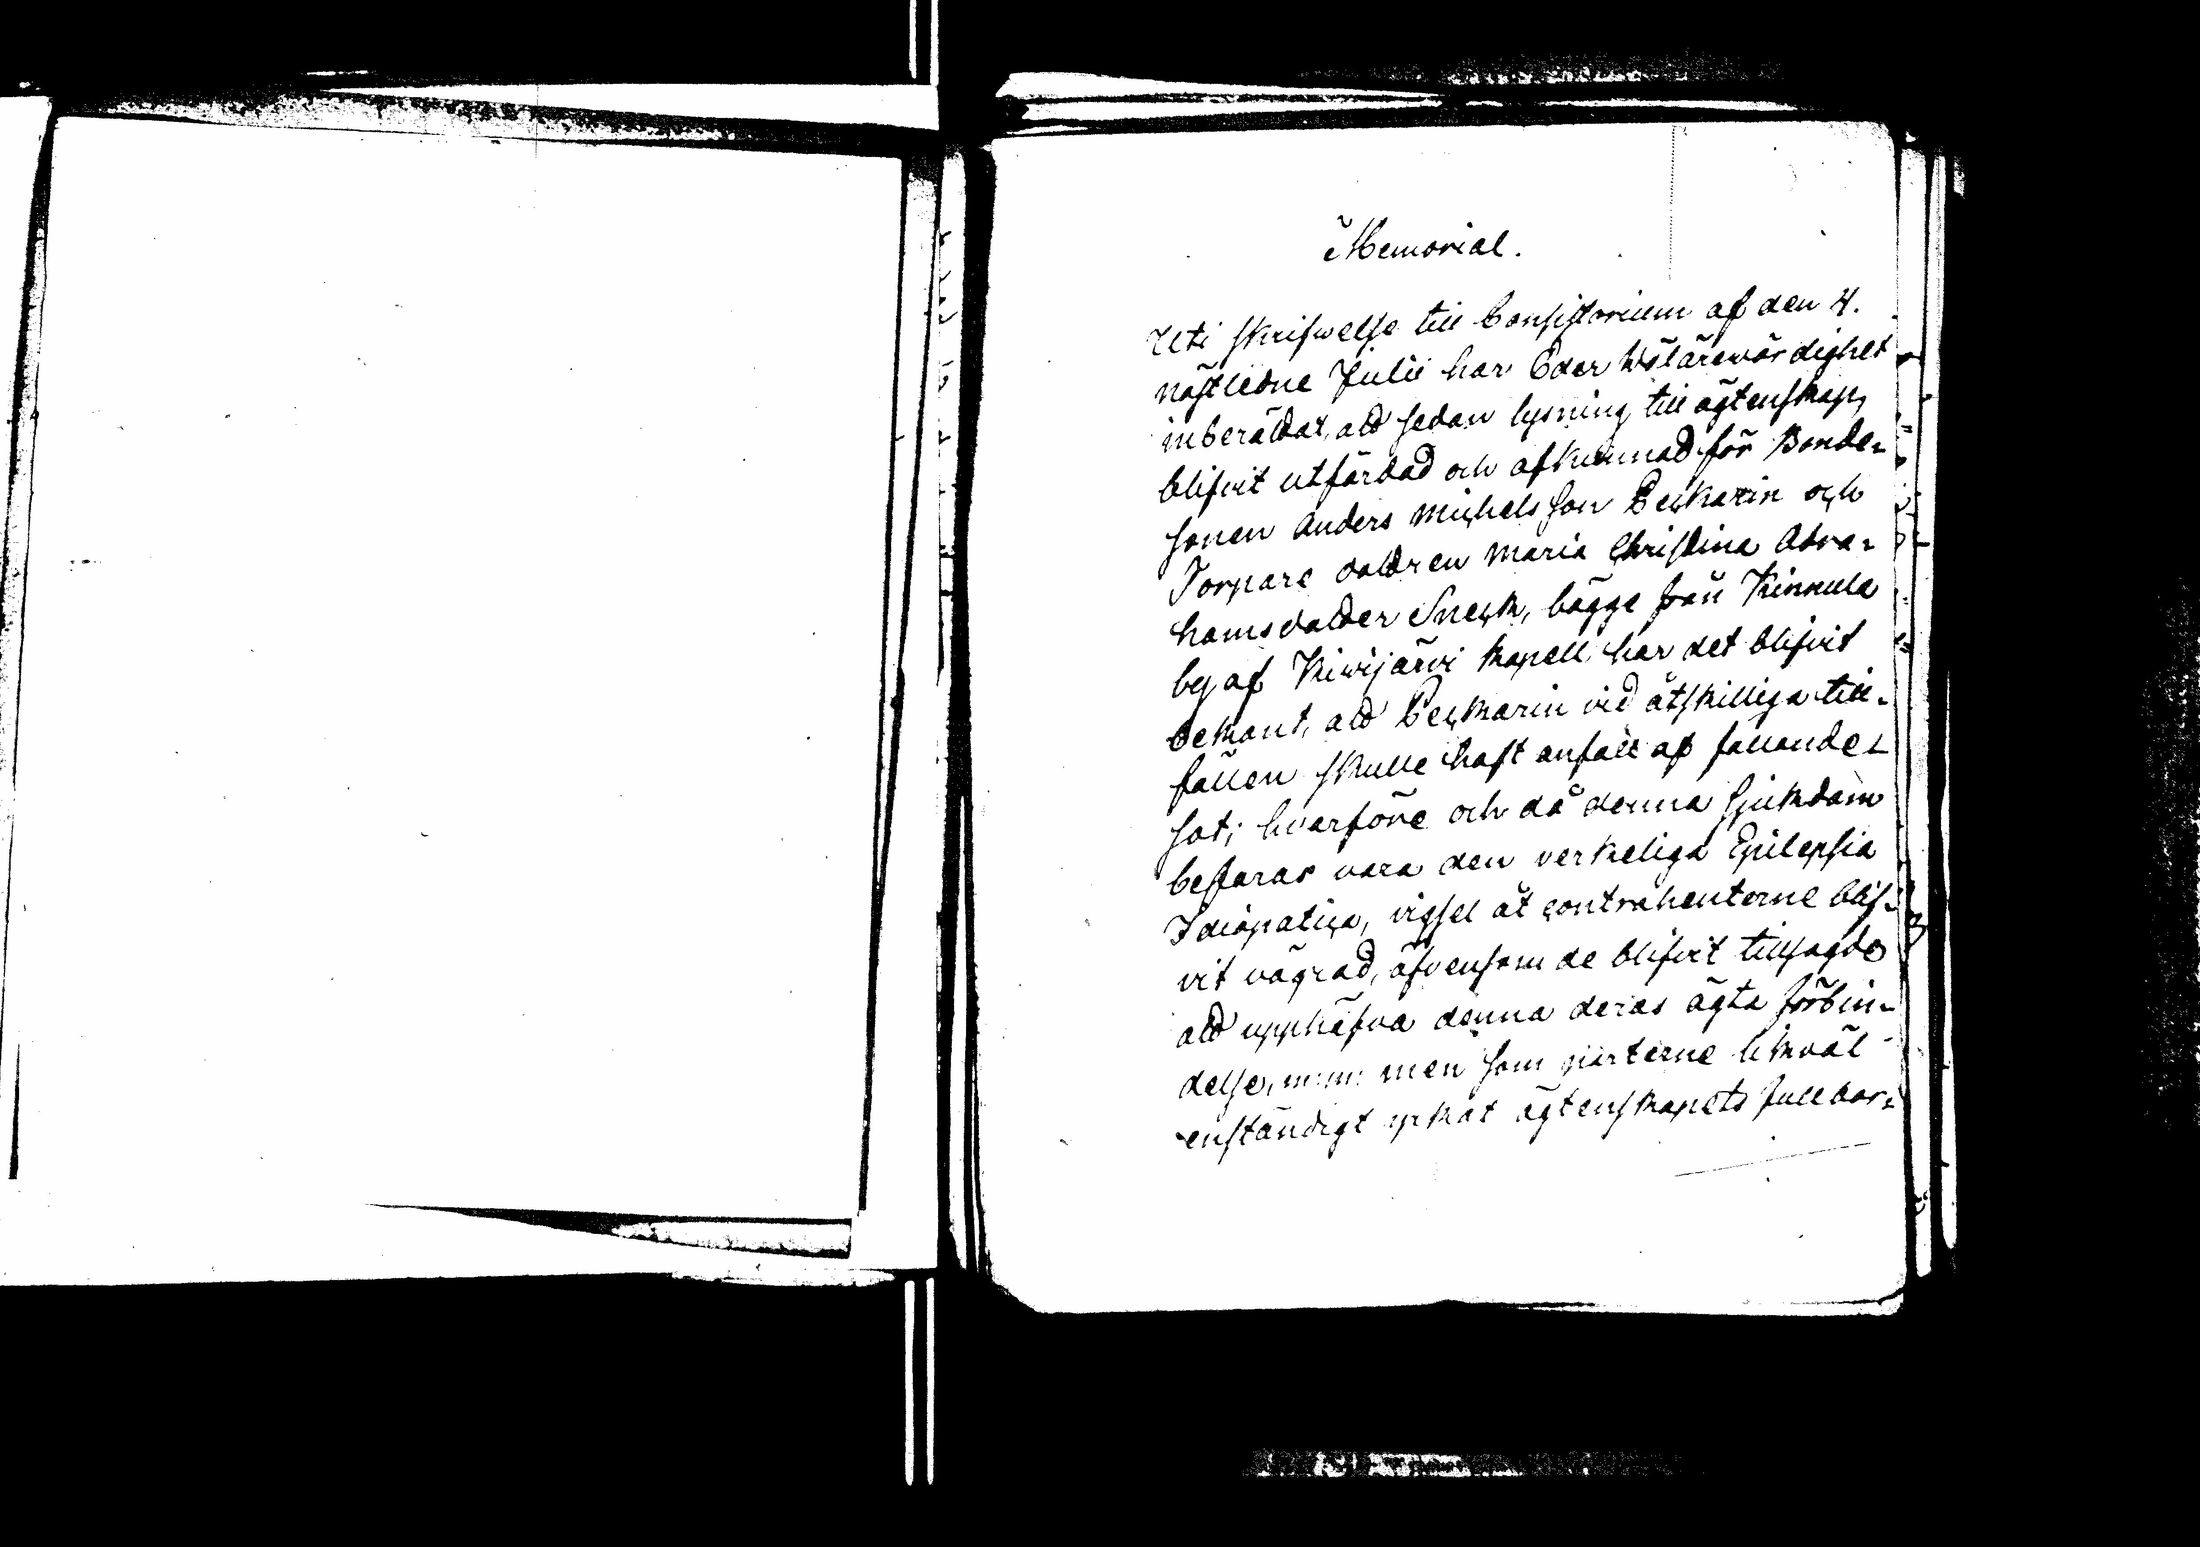 Memorial.
Uti skrifwelse till Consistorium af den 4.
nästledne Julii har Eder Wälärewördighet
inberättat, att sedan lysning till ägtenskap,
blifvit utfärdad och afkunnad för Bonde-
sonen Anders Michelsson Peckarin och
Torpare dottren Maria Christina Abra-
hamsdotter Sneck, bägge från Kinnula
by af Kiwijärvi kapell, har det blifvit
bekant, att Peckarin vid åtskilliga till-
fällen skulle haft anfall af fallande-
sot; hvarföre och då denna sjukdom
befaras vara den verkeliga Epilepsia
Idiopatica, vigsel åt contrahenterne blif-
vit vägrad, äfvensom de blifvit tillsagde
att upphäfva denna deras ägta förbin-
delse, m: m: men som parterne likväl
enständigt yrkat ägtenskapets fullbor-